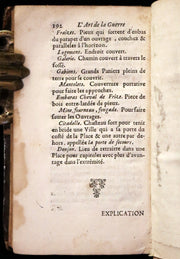 192 L'Art de la Guerre
Fraizes. Pieux qui sortent d'enbas
du parapet d'un ouvrage, couchez &
paralleles à l'horizon.
Logement. Endroit couvert.
Galerie. Chemin couvert à travers le
fossé.
Gabions. Grands Paniers pleins de
terre pour se couvrir.
Mantelets. Couverture portative
pour faire les approches.
Embaras Cheval de Frize. Piece de
bois entre-lardée de pieux.
Mine, fourneau, fougade. Pour faire
sauter les Ouvrages.
Citadelle. Chasteau fort pour tenir
en bride une Ville qui a sa porte du
costé de la Place & une autre par de-
hors, appellée la porte de secours.
Donjon. Lieu de retraite dans une
Place pour capituler avec plus d'avan-
tage dans l'extrémité.
EXPLICATION